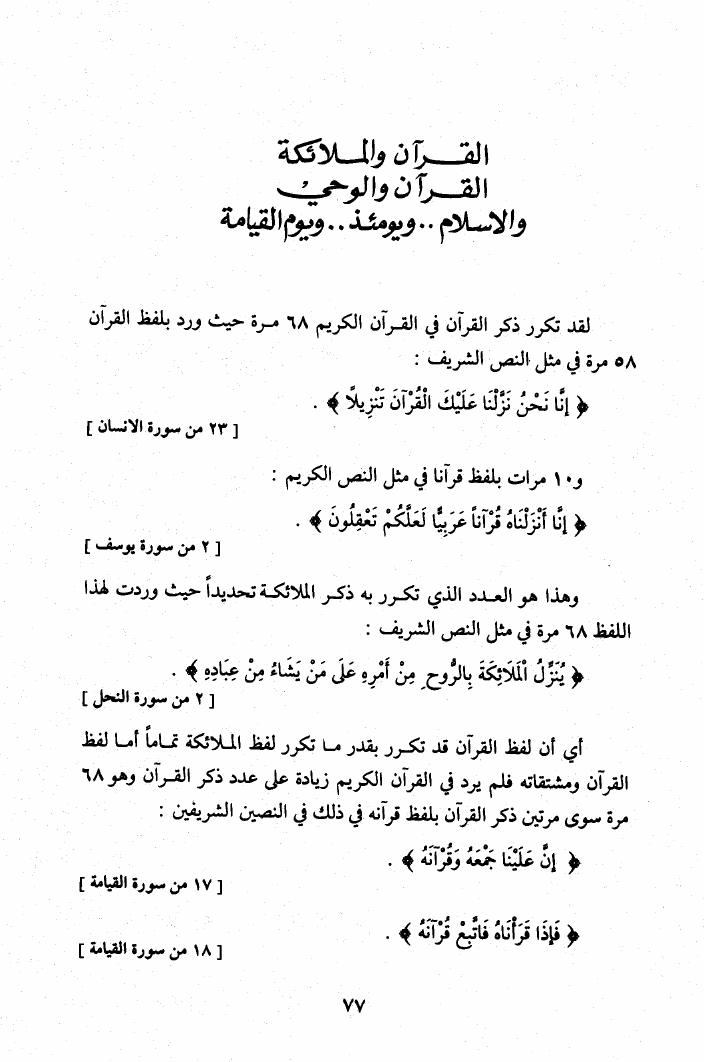 القرآن والملائكة
القرآن والوحي
والاسلام .. ويومئذ .. ويوم القيامة
لقد تكرر ذكر القرآن في القرآن الكريم ٦٨ مرة حيث ورد بلفظ القرآن
٥٨ مرة في مثل النص الشريف :
﴿ إِنَّا نَحْنُ نَزَّلْنَا عَلَيْكَ الْقُرْآنَ تَنْزِيلاً ﴾ .
[ ٢٣ من سورة الانسان ]
و١٠ مرات بلفظ قرآنا في مثل النص الكريم :
﴿ إِنَّا أَنْزَلْنَاهُ قُرْآناً عَرَبِيًّا لَعَلَّكُمْ تَعْقِلُونَ ﴾ .
[ ٢ من سورة يوسف ]
وهذا هو العدد الذي تكرر به ذكر الملائكة تحديداً حيث وردت لهذا
اللفظ ٦٨ مرة في مثل النص الشريف :
﴿ يُنَزِّلُ الْمَلَائِكَةَ بِالرُّوحِ مِنْ أَمْرِهِ عَلَى مَنْ يَشَاءُ مِنْ عِبَادِهِ ﴾ .
[ ٢ من سورة النحل ]
أي أن لفظ القرآن قد تكرر بقدر ما تكرر لفظ الملائكة تماماً أما لفظ
القرآن ومشتقاته فلم يرد في القرآن الكريم زيادة على عدد ذكر القرآن وهو ٦٨
مرة سوى مرتين ذكر القرآن بلفظ قرآنه في ذلك في النصين الشريفين :
﴿ إِنَّ عَلَيْنَا جَمْعَهُ وَقُرْآنَهُ ﴾ .
[ ١٧ من سورة القيامة ]
﴿ فَإِذَا قَرَأْنَاهُ فَاتَّبِعْ قُرْآنَهُ ﴾ .
[ ١٨ من سورة القيامة ]
٧٧